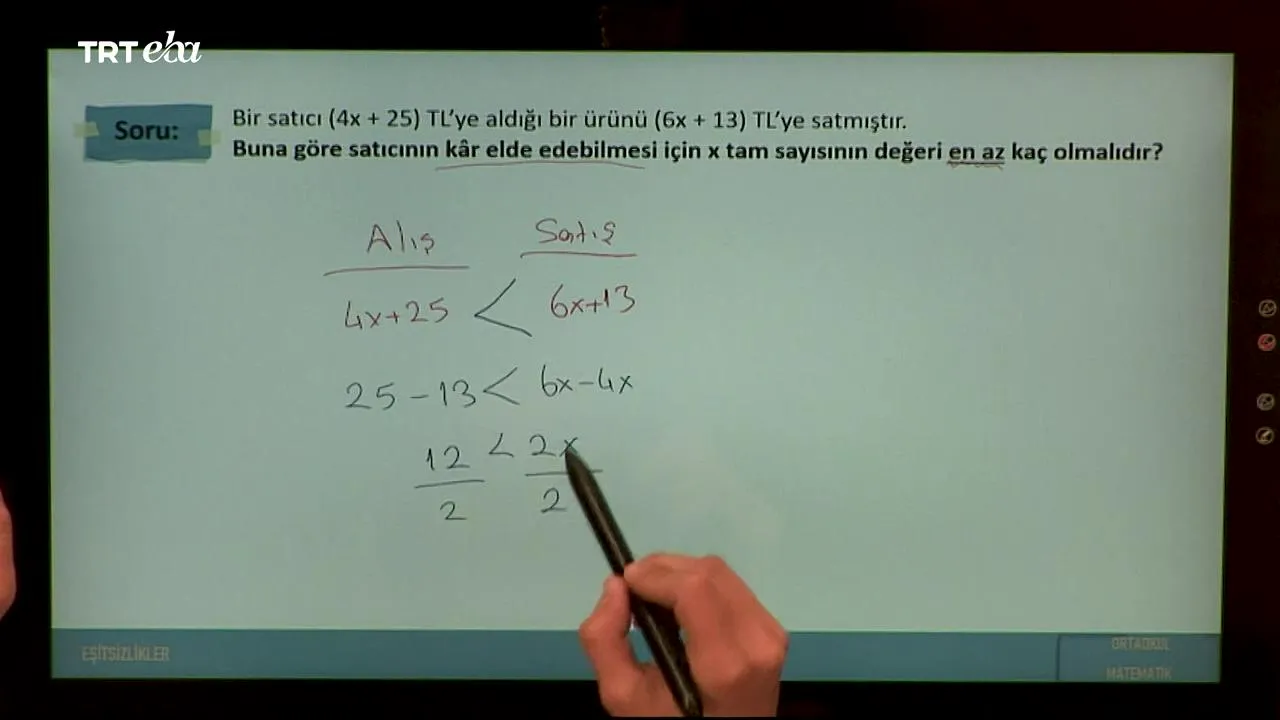 TRT eba
Soru:
Bir satıcı (4x + 25) TL'ye aldığı bir ürünü (6x + 13) TL'ye satmıştır.
Buna göre satıcının kâr elde edebilmesi için x tam sayısının değeri en az kaç olmalıdır?
Alış Satış
4x+25 < 6x+13
25 - 13 < 6x - 4x
12 < 2x
2 2
EŞİTSİZLİKLER
ORTAOKUL
MATEMATİK